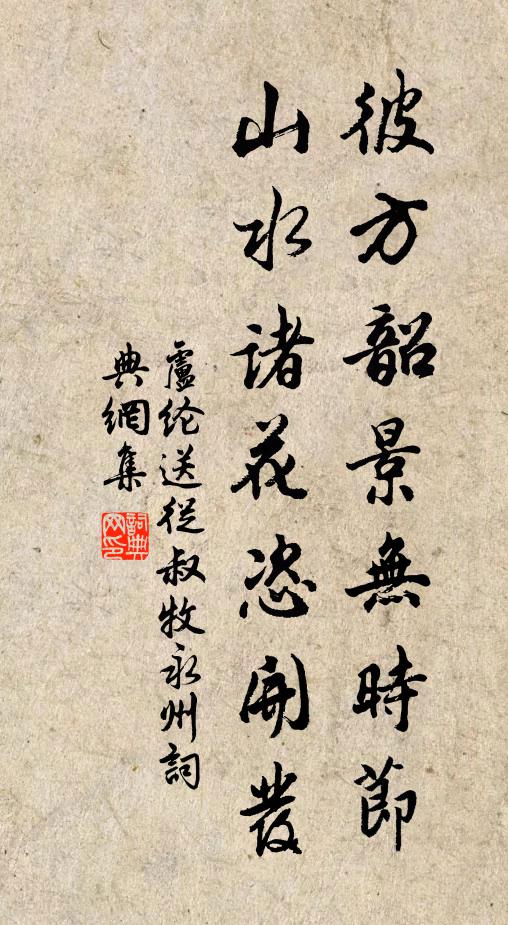 彼方韶景無時節
山水諸花恣開發
盧纶送從叔牧永州詞
典網集
詞典
网印